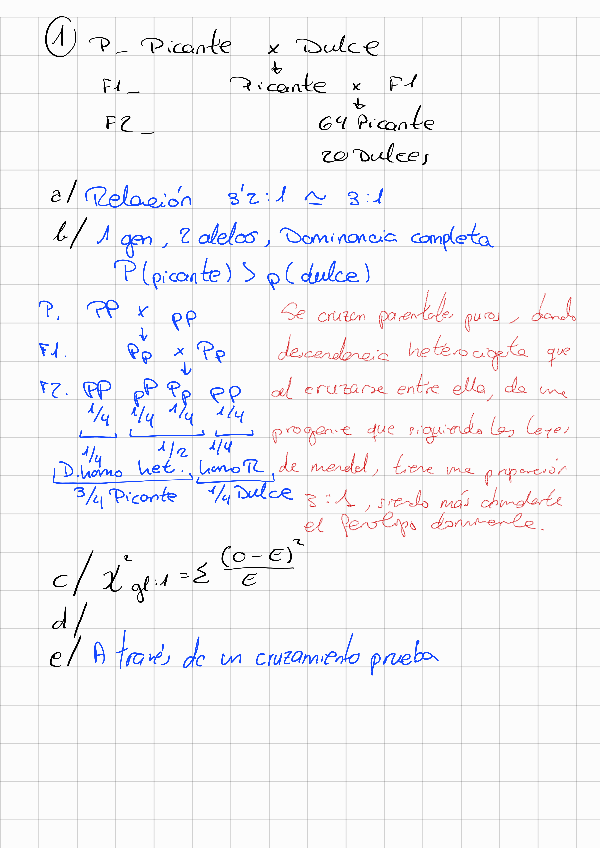 1 P_ Picante x Dulce
F1_ Picante x F1
F2_ 64 Picante
20 Dulces
a/ Relación 3'2:1 ≃ 3:1
b/ 1 gen, 2 alelos, Dominancia completa
P(picante) > p(dulce)
P. PP x pp
F1. Pp x Pp
F2. PP pP Pp pp
1/4 1/4 1/4 1/4
1/4 1/2 1/4
D.homo het. homo R.
3/4 Picante 1/4 Dulce
Se cruzan parentales puros, dando
descendencia heterocigota que
al cruzarse entre ella, da una
progenie que siguiendo las leyes
de mendel, tiene una proporción
3:1, siendo más abundante
el fenotipo dominante.
c/ χ² gl:1 = Σ (O-E)² / E
d/
e/ A través de un cruzamiento prueba